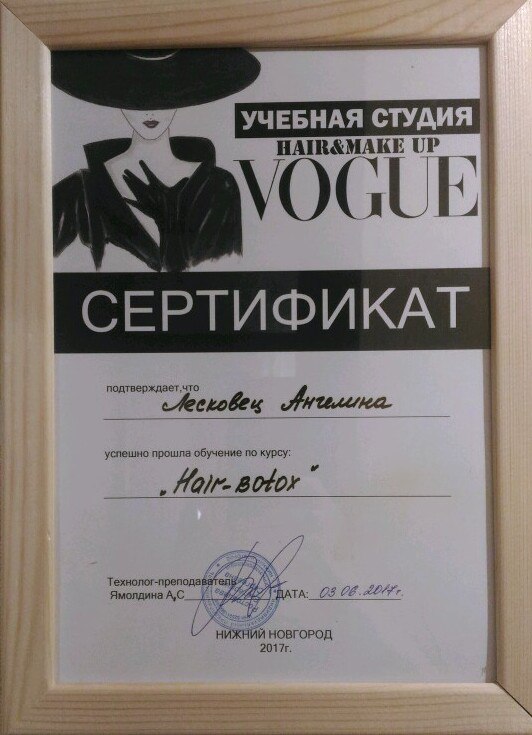 УЧЕБНАЯ СТУДИЯ
HAIR&MAKE UP
VOGUE
СЕРТИФИКАТ
подтверждает,что
Лесковец Ангелина
успешно прошла обучение по курсу:
„Hair-Botox"
Технолог-преподаватель
Ямолдина А,С ДАТА: 03 06. 2017г.
НИЖНИЙ НОВГОРОД
2017г.